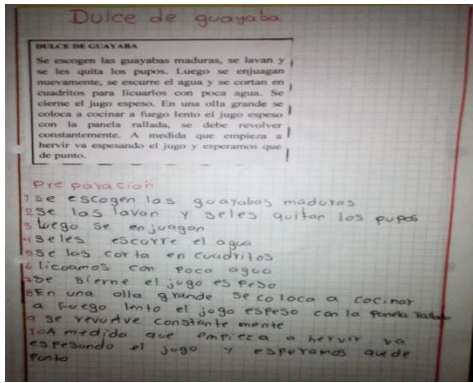 Dulce de guayaba
DULCE DE GUAYABA
Se escogen las guayabas maduras, se lavan y
se les quita los pupos. Luego se enjuagan
nuevamente, se escurre el agua y se cortan en
cuadritos para licuarlos con poca agua. Se
cierne el jugo espeso. En una olla grande se
coloca a cocinar a fuego lento el jugo espeso
con la panela rallada, se debe revolver
constantemente. A medida que empieza a
hervir va espesando el jugo y esperamos que
de punto.
Preparación
1 se escogen las guayabas maduras
2 se las lavan y seles quitan los pupos
3 luego se enjuagan
4 seles escurre el agua
5 se las corta en cuadritos
6 licoamos con poca agua
7 se sierne el jugo espeso
8 En una olla grande se coloca a cocinar
a fuego lento el jugo espeso con la panela rallada
9 se revuelve constante mente
10 A medida que empieza a hervir va
espesando el jugo y esperamos que de
punto